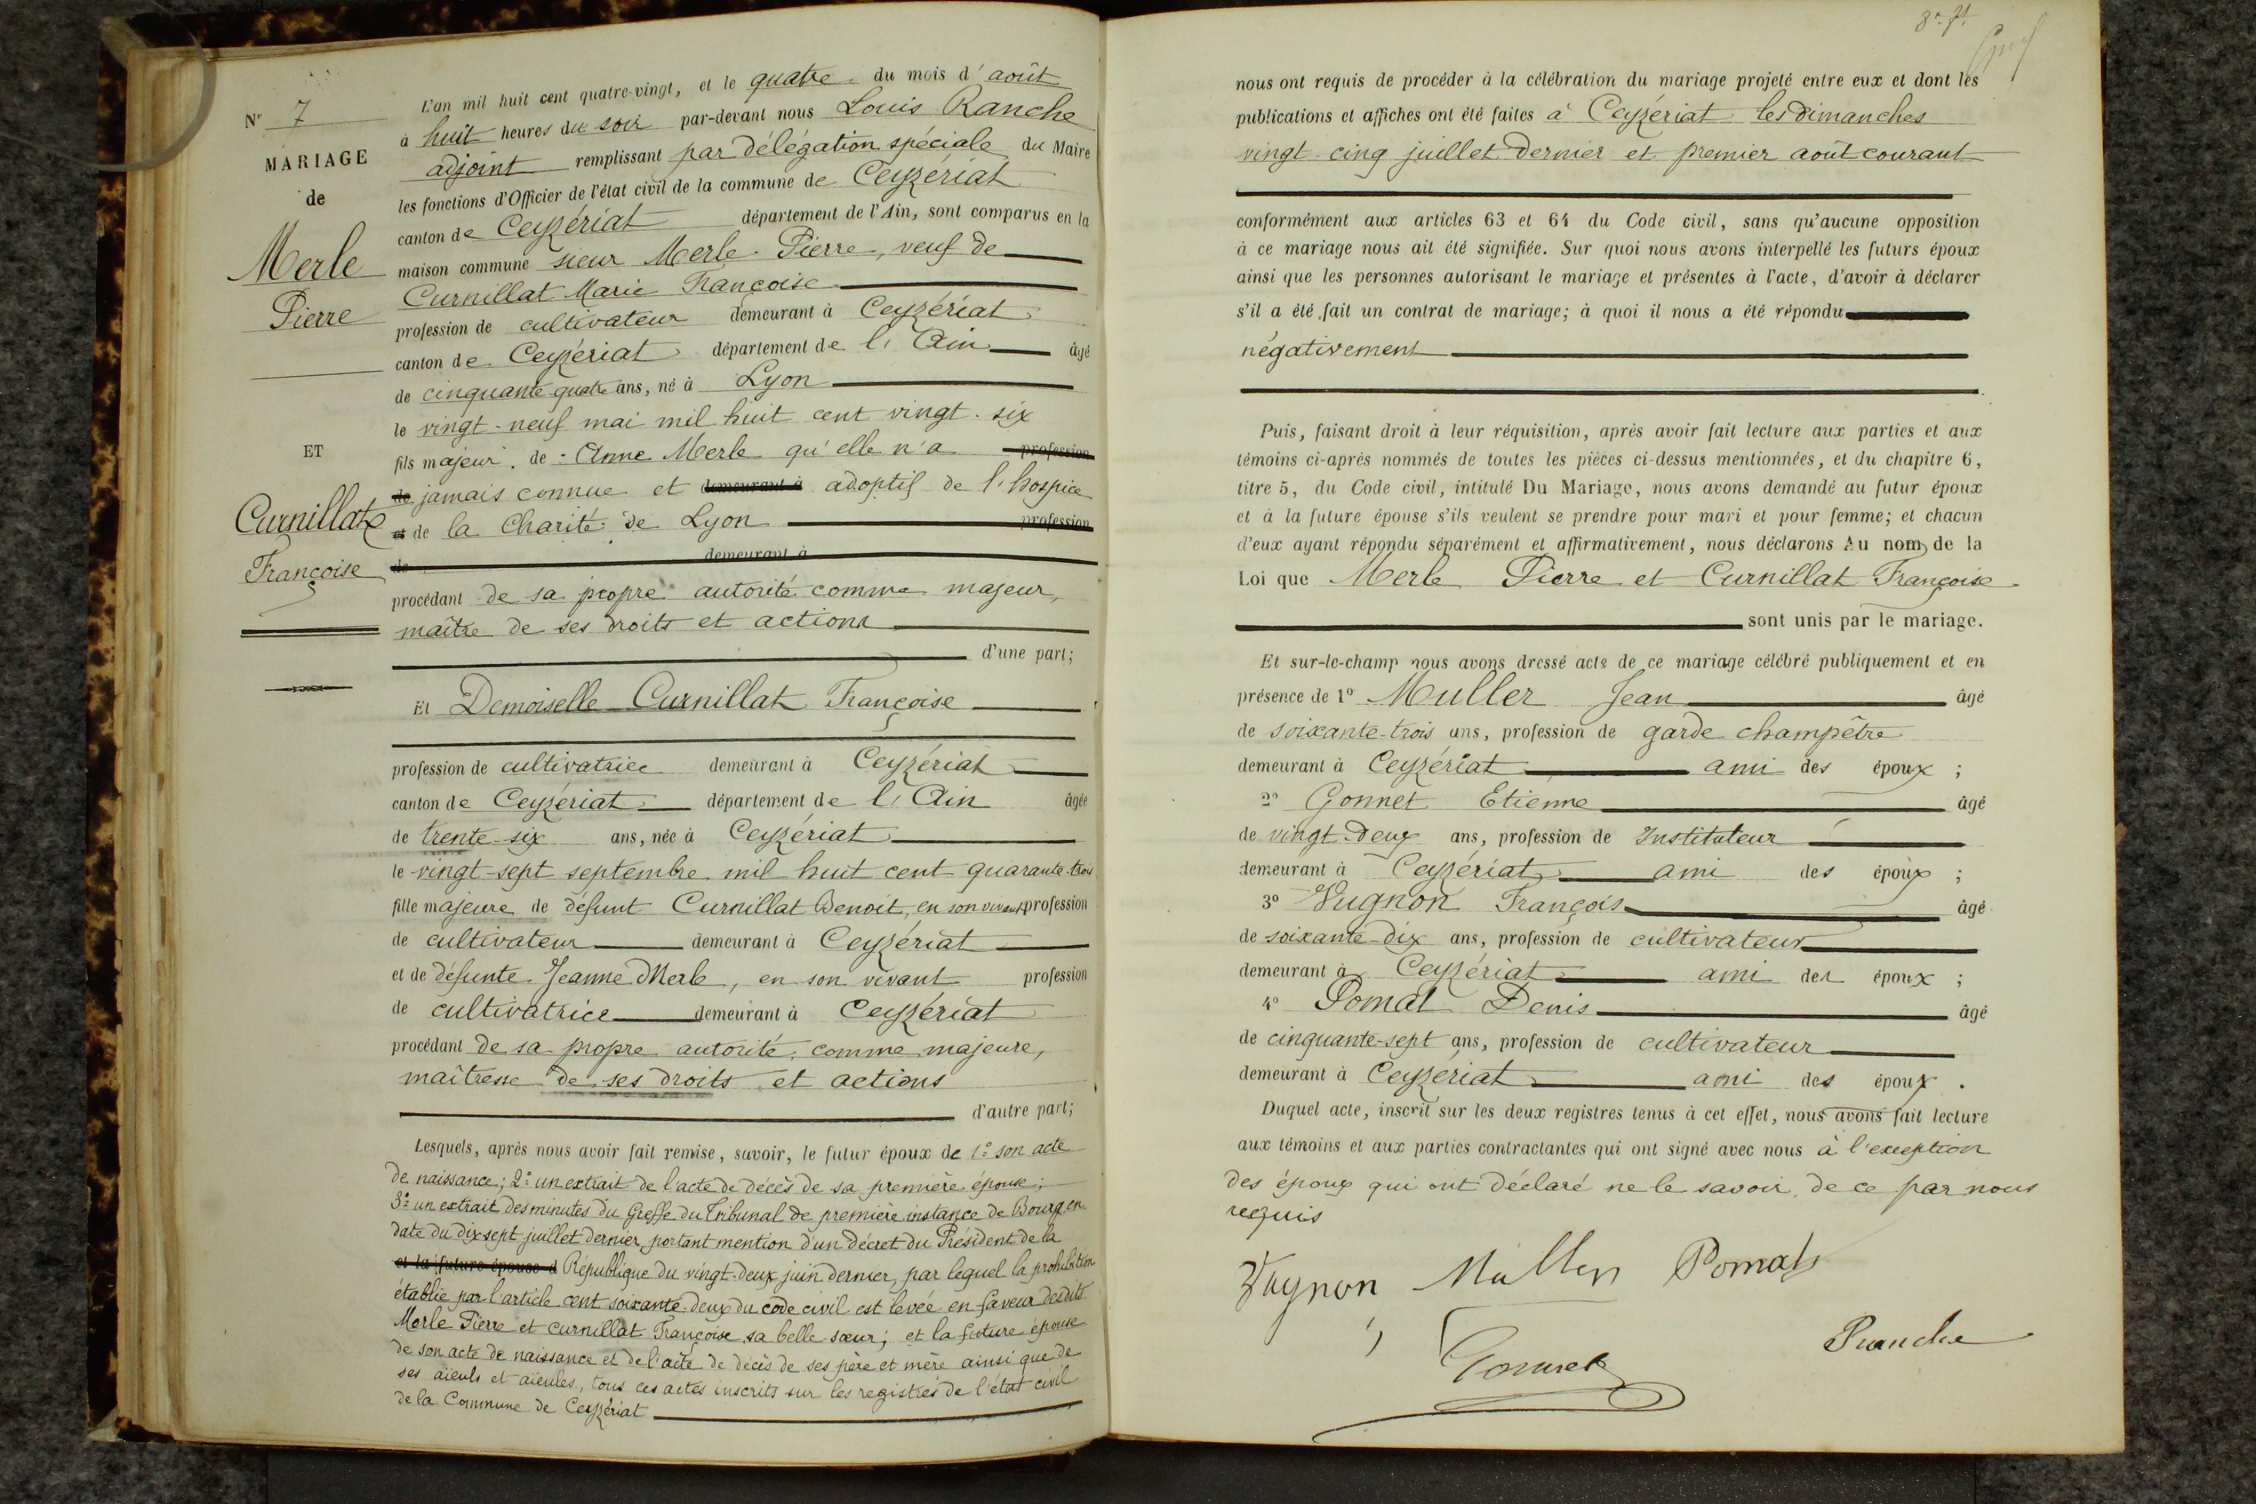 N° 7
MARIAGE
de
Merle
Pierre
ET
Curnillat
Françoise
L'an mil huit cent quatre-vingt, et le quatre du mois d'août
à huit heures du soir par-devant nous Louis Ranche
adjoint remplissant par délégation spéciale du Maire
les fonctions d'Officier de l'état civil de la commune de Ceyzériat
canton de Ceyzériat département de l'Ain, sont comparus en la
maison commune sieur Merle Pierre, veuf de
Curnillat Marie Françoise
profession de cultivateur demeurant à Ceyzériat
canton de Ceyzériat département de l'Ain âgé
de cinquante-quatre ans, né à Lyon
le vingt-neuf mai mil huit cent vingt-six
fils majeur de Anne Merle qu'elle n'a profession
de jamais connue et demeurant à adoptif de l'hospice
et de la Charité de Lyon profession
de demeurant à
procédant de sa propre autorité comme majeur,
maître de ses droits et actions
d'une part;
Et Demoiselle Curnillat Françoise
profession de cultivatrice demeurant à Ceyzériat
canton de Ceyzériat département de l'Ain âgée
de trente-six ans, née à Ceyzériat
le vingt-sept septembre mil huit cent quarante-trois
fille majeure de défunt Curnillat Benoit, en son vivant profession
de cultivateur demeurant à Ceyzériat
et de défunte Jeanne Merle, en son vivant profession
de cultivatrice demeurant à Ceyzériat
procédant de sa propre autorité comme majeure,
maîtresse de ses droits et actions
d'autre part;
Lesquels, après nous avoir fait remise, savoir, le futur époux de 1° son acte
de naissance; 2° un extrait de l'acte de décès de sa première épouse;
3° un extrait des minutes du Greffe du Tribunal de première instance de Bourg en
date du dix sept juillet dernier, portant mention d'un décret du Président de la
et la future épouse d République du vingt-deux juin dernier, par lequel la prohibition
établie par l'article cent soixante-deux du code civil est levée en faveur desdits
Merle Pierre et Curnillat Françoise sa belle sœur; et la future épouse
de son acte de naissance et de l'acte de décès de ses père et mère ainsi que de
ses aïeuls et aïeules, tous ces actes inscrits sur les registres de l'état civil
de la Commune de Ceyzériat
nous ont requis de procéder à la célébration du mariage projeté entre eux et dont les
publications et affiches ont été faites à Ceyzériat les dimanches
vingt-cinq juillet dernier et premier août courant
conformément aux articles 63 et 64 du Code civil, sans qu'aucune opposition
à ce mariage nous ait été signifiée. Sur quoi nous avons interpellé les futurs époux
ainsi que les personnes autorisant le mariage et présentes à l'acte, d'avoir à déclarer
s'il a été fait un contrat de mariage; à quoi il nous a été répondu
négativement
Puis, faisant droit à leur réquisition, après avoir fait lecture aux parties et aux
témoins ci-après nommés de toutes les pièces ci-dessus mentionnées, et du chapitre 6,
titre 5, du Code civil, intitulé Du Mariage, nous avons demandé au futur époux
et à la future épouse s'ils veulent se prendre pour mari et pour femme; et chacun
d'eux ayant répondu séparément et affirmativement, nous déclarons Au nom de la
Loi que Merle Pierre et Curnillat Françoise
sont unis par le mariage.
Et sur-le-champ nous avons dressé acte de ce mariage célébré publiquement et en
présence de 1° Muller Jean âgé
de soixante-trois ans, profession de garde champêtre
demeurant à Ceyzériat ami des époux ;
2° Gonnet Etienne âgé
de vingt-deux ans, profession de Instituteur
demeurant à Ceyzériat ami des époux ;
3° Vugnon François âgé
de soixante-dix ans, profession de cultivateur
demeurant à Ceyzériat ami des époux ;
4° Pomat Denis âgé
de cinquante-sept ans, profession de cultivateur
demeurant à Ceyzériat ami des époux .
Duquel acte, inscrit sur les deux registres tenus à cet effet, nous avons fait lecture
aux témoins et aux parties contractantes qui ont signé avec nous à l'exception
des époux qui ont déclaré ne le savoir de ce par nous
requis
Vugnon Muller Pomat
Gonnet
Ranche